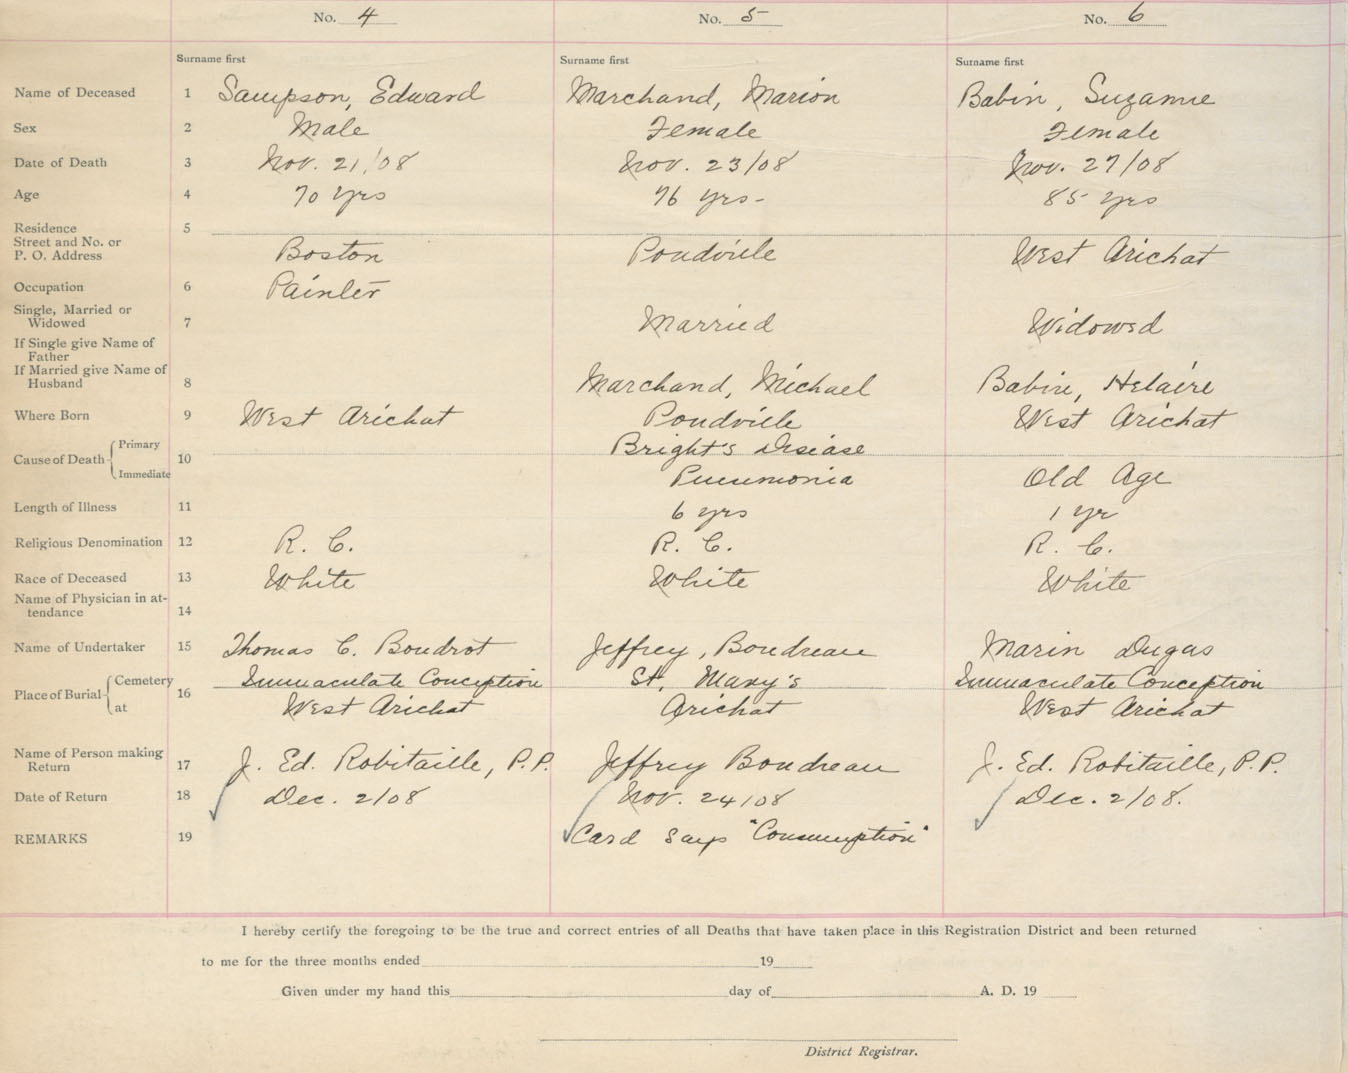 No. 4 No. 5 No. 6
Surname first Surname first Surname first
Name of Deceased 1 Sampson, Edward Marchand, Marion Babin, Suzanne
Sex 2 Male Female Female
Date of Death 3 Nov. 21/08 Nov. 23/08 Nov. 27/08
Age 4 70 yrs 76 yrs- 85 yrs
Residence 5
Street and No. or
P. O. Address Boston Poudville West Arichat
Occupation 6 Painter
Single, Married or
Widowed 7 Married Widowed
If Single give Name of
Father
If Married give Name of
Husband 8 Marchand, Michael Babin, Helaire
Where Born 9 West Arichat Poudville West Arichat
Cause of Death 10 Primary Bright's Disease
Immediate Pneumonia Old Age
Length of Illness 11 6 yrs 1 yr
Religious Denomination 12 R. C. R. C. R. C.
Race of Deceased 13 White White White
Name of Physician in at-
tendance 14
Name of Undertaker 15 Thomas C. Boudrot Jeffrey, Boudreau Marin Dugas
Place of Burial 16 Cemetery Immaculate Conception St. Mary's Immaculate Conception
at West Arichat Arichat West Arichat
Name of Person making
Return 17 J. Ed. Robitaille, P.P. Jeffrey Boudreau J. Ed. Robitaille, P.P.
Date of Return 18 Dec. 2/08 Nov. 24/08 Dec. 2/08.
REMARKS 19 Card says "Consumption"
I hereby certify the foregoing to be the true and correct entries of all Deaths that have taken place in this Registration District and been returned
to me for the three months ended 19
Given under my hand this day of A. D. 19
District Registrar.